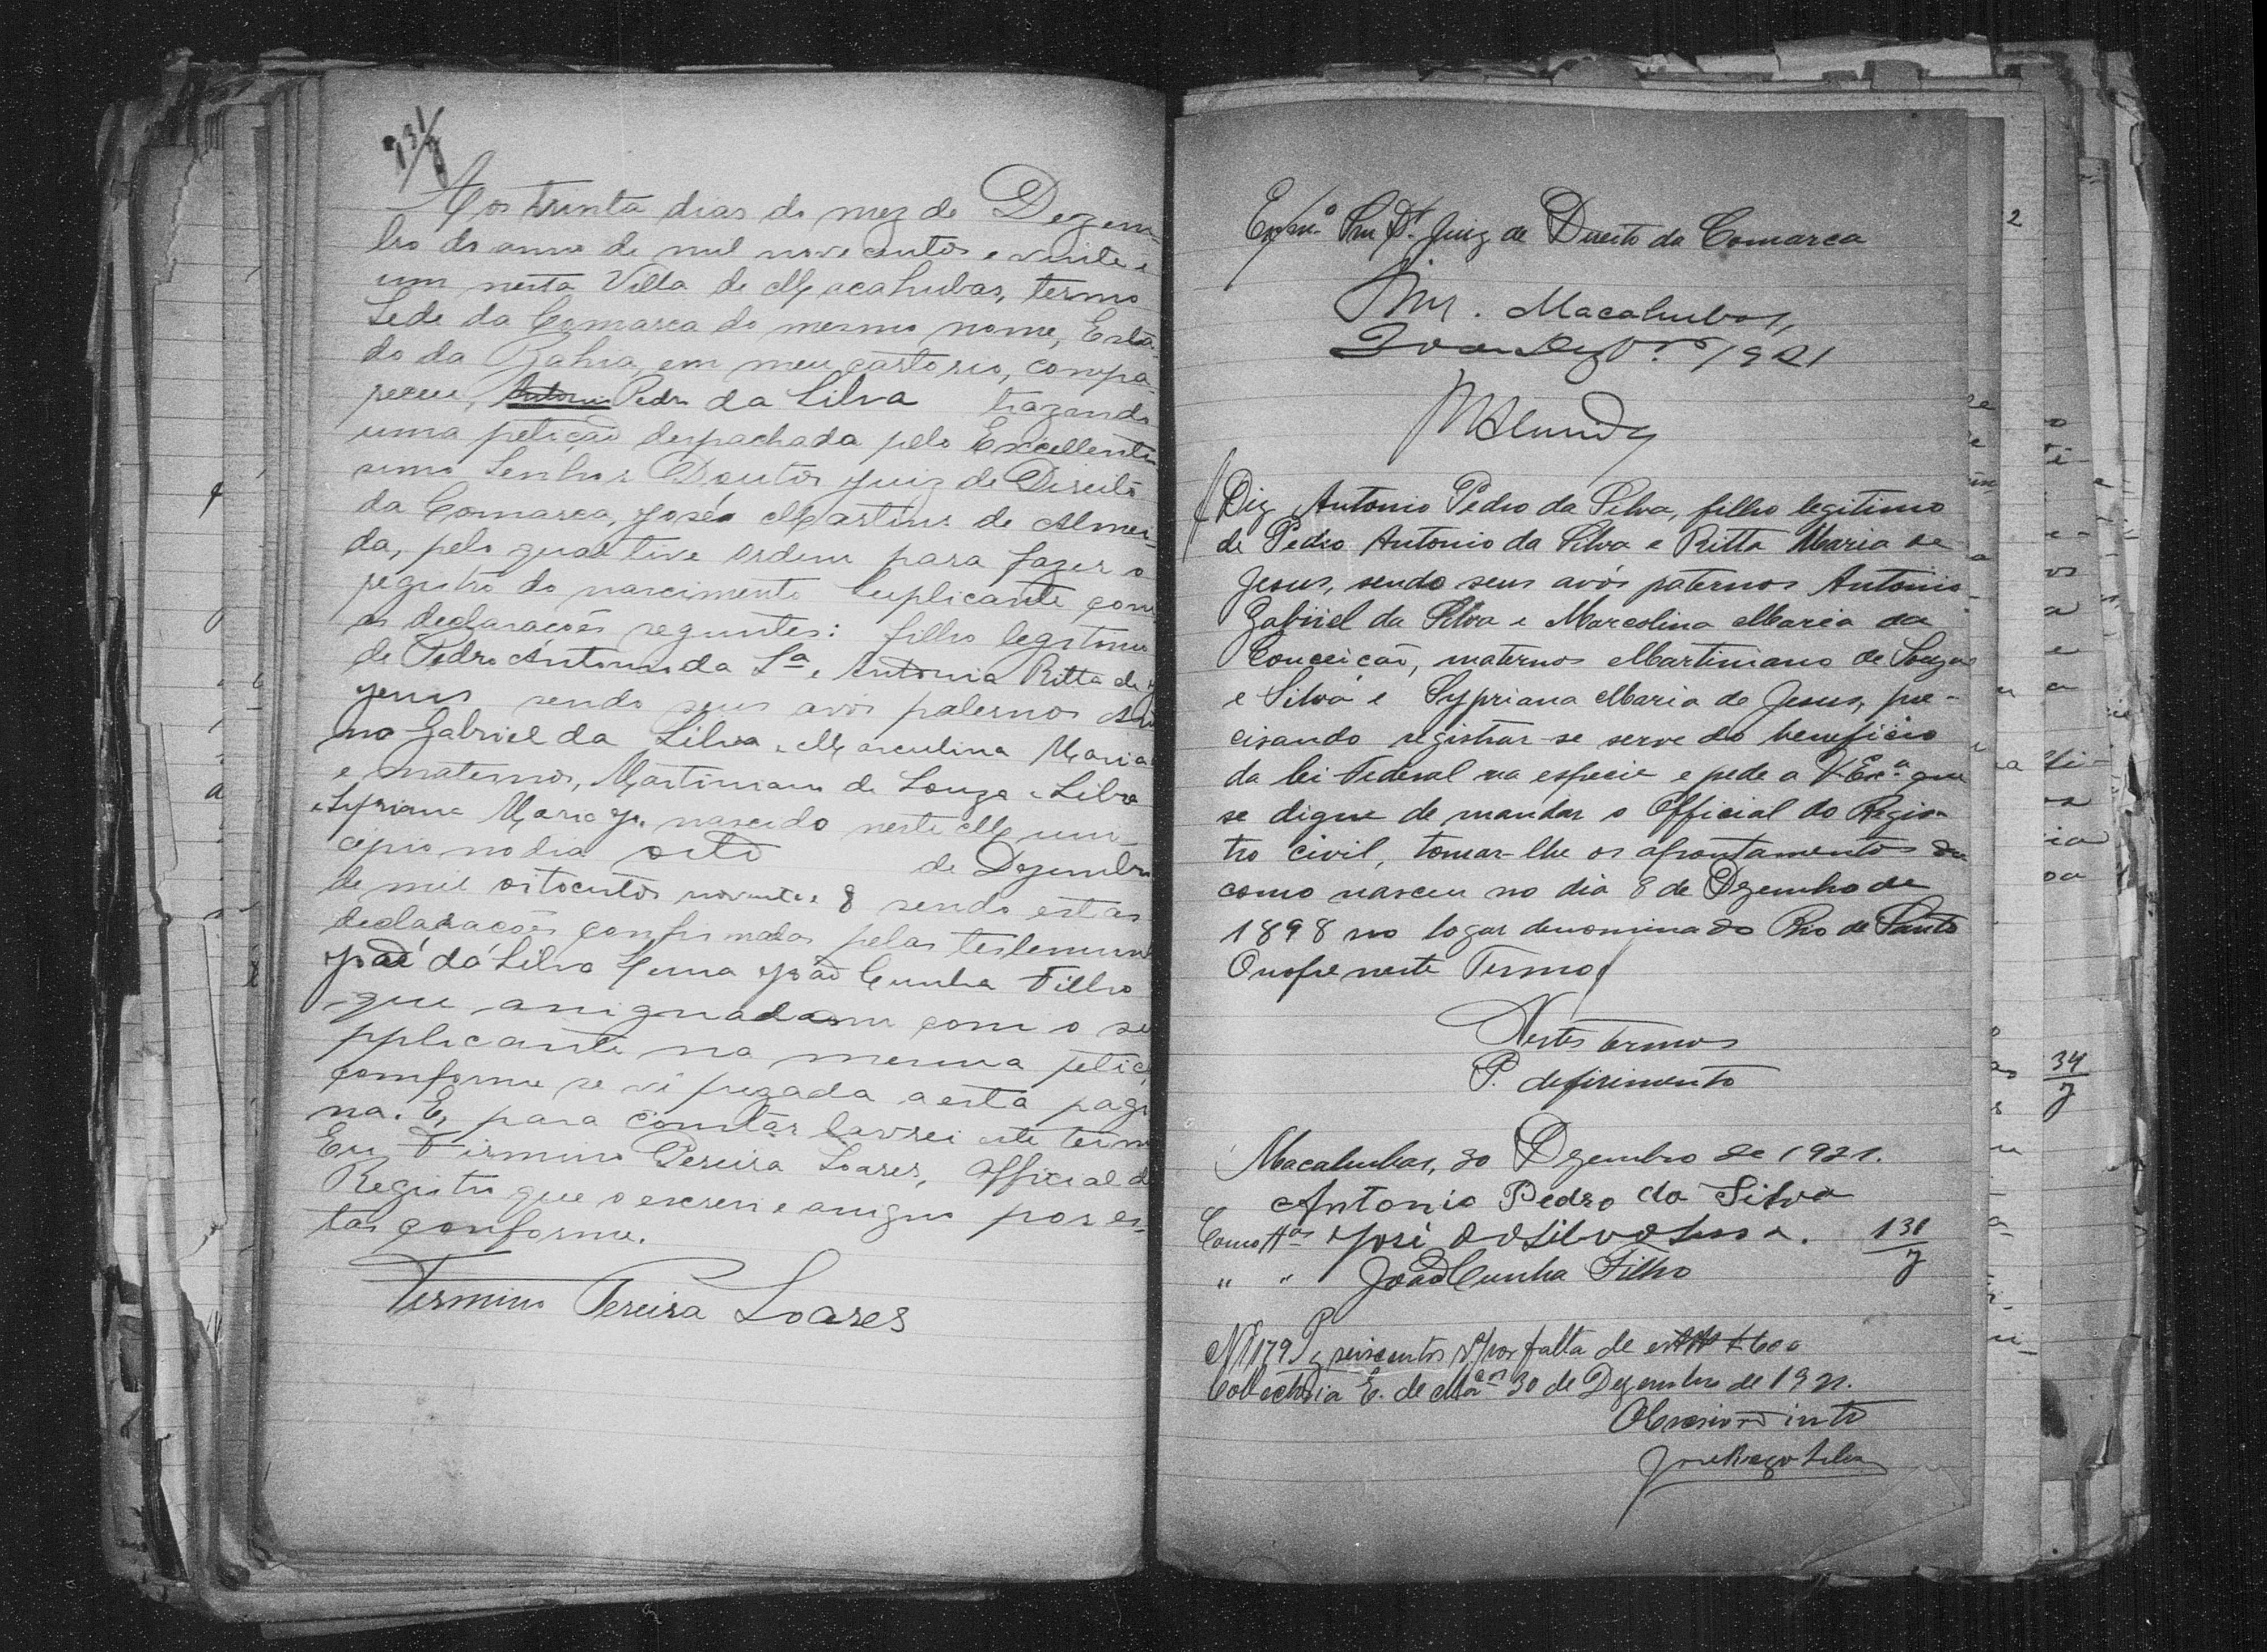 131/7
Aos trinta dias do mez de Dezem-
bro do anno de mil nove centos e vinte e
um nesta Villa de Macahubas, termo
Sede da Comarca do mesmo nome, Esta-
do da Bahia, em meu cartorio, compa-
receu, Antonio Pedro da Silva trazendo
uma petição despachada pelo Excellentis
simo Senhor Doutor Juiz de Direito
da Comarca, José Martins de Almei-
da, pelo qual tive ordem para fazer o
registro do nascimento Suplicante com
as declarações seguintes: filho legitimo
de Pedro Antonio da Sª e Antonia Ritta de
Jesus sendo seus avós paternos
no Gabriel da Silva e Marculina Maria
e maternos, Martiniano de Souza e Silva
e Sypriana Maria J. nascido neste Muni-
cipio no dia oito de Dezembro
de mil oitocentos noventa e 8 sendo estas
declarações confirmadas pelas testemun
José da Silva Lessa João Cunha Filho
que assignadaram com o su
pplicante na mesma petiç
comforme se vê pregada a esta pagi
na. E, para constar lavrei este term
Eu Firmino Pereira Soares, Official d
Registro que o escrevi e assigno por es-
tar conforme.
Firmino Pereira Soares
Exmº Snr Dr. Juiz de Direito da Comarca
Sim. Macahubas,
30 de Dezbrº 1921
MAlmeida
Diz Antonio Pedro da Silva, filho legitimo
de Pedro Antonio da Silva e Ritta Maria de
Jesus, sendo seus avós paternos Antonio
Gabriel da Silva e Marcolina Maria da
Conceicão, maternos Martiniano de Souza
e Silva e Sypriana Maria de Jesus, pre-
cisando registrar-se serve do beneficio
da lei Federal na especie e pede a V Exª que
se digne de mandar o Official do Regis-
tro civil, tomar-lhe os apontamentos de
como nasceu no dia 8 de Dezembro de
1898 no logar denominado Rio de Santo
Onofre neste Termo
Nestes termos
P. deferimento
Macahubas, 30 Dezembro de 1921.
Antonio Pedro da Silva
Como ttas José da Silva Lessa. 131/7
" " João Cunha Filho
Nº 179 Pg seiscentos rs por falta de $600
Collectoria E. de Macas 30 de Dezembro de 1921.
O Escrivão intº
José Rego Silva
2
34/7